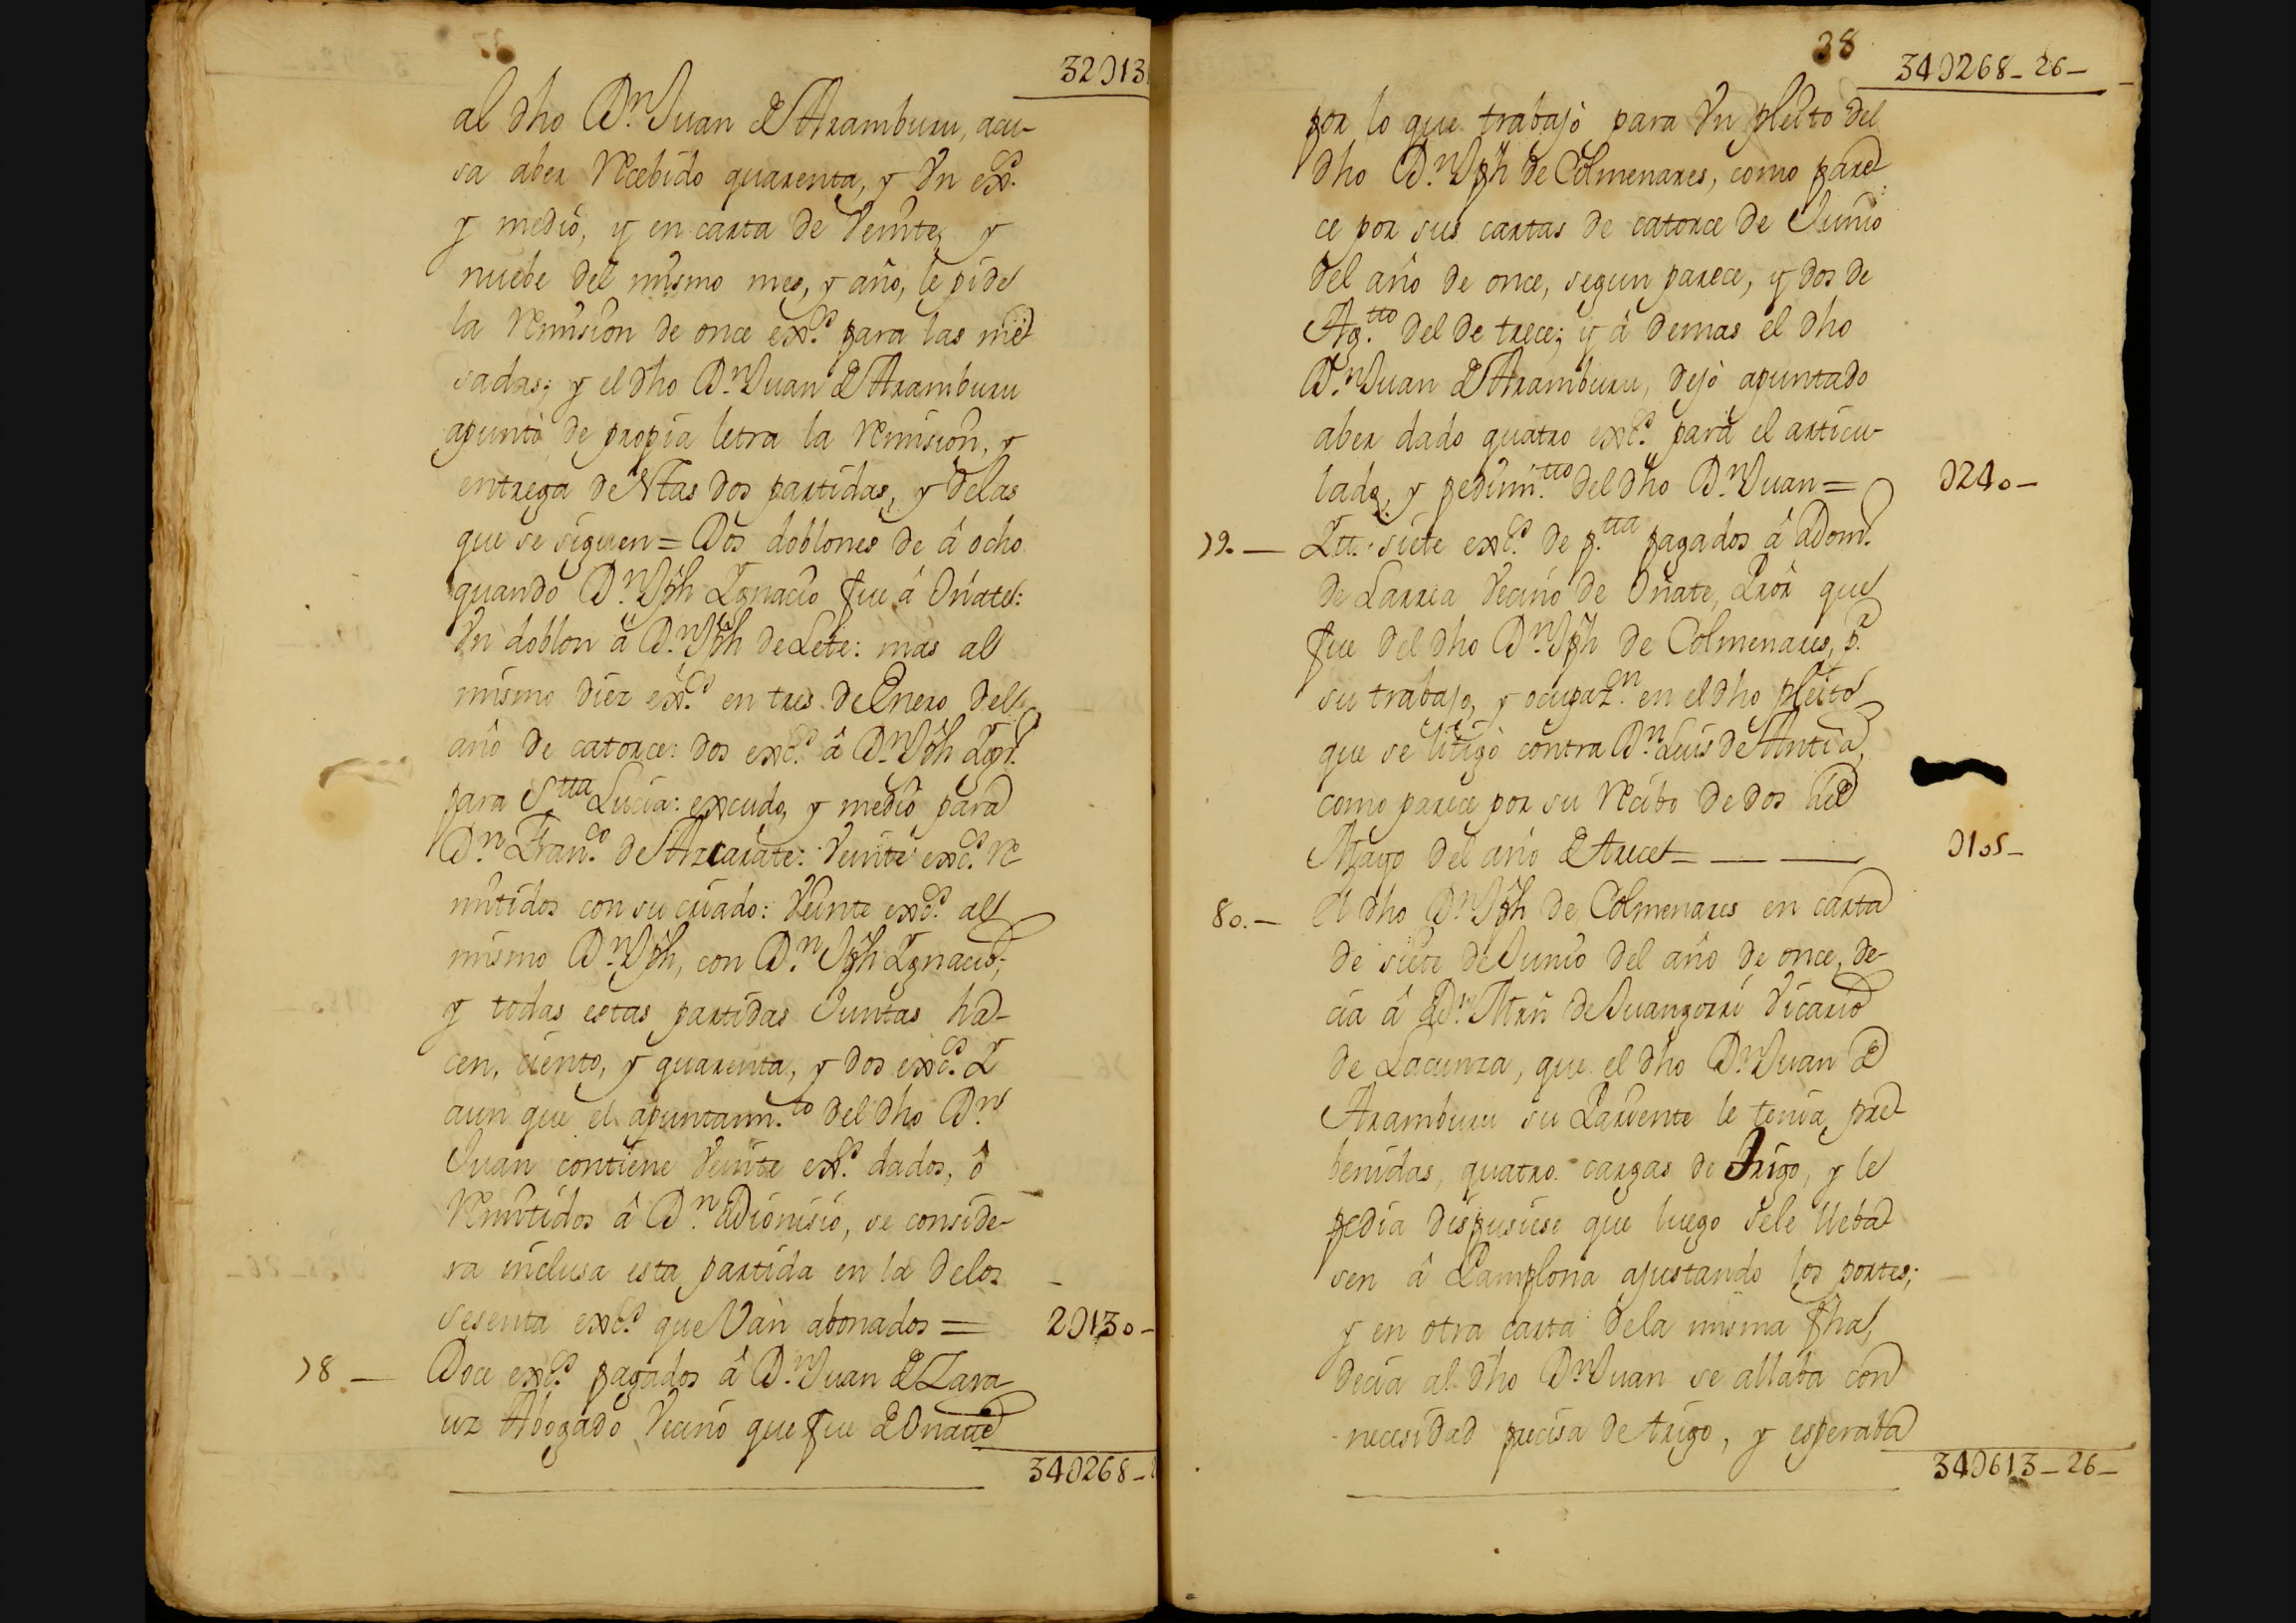 32U13
al dho D.n Juan de Aramburu, acu-
sa aber Recebido quarenta, y Vn exc.s
y medio, y en carta de Veinte, y
nuebe del mismo mes, y año, le pide
la Remision de once exc.s para las me-
sadas; y el dho D.n Juan de Aramburu
apuntò de propia letra la Remision, y
entrega de estas dos partidas, y delas
que se siguen = Dos doblones de â ocho
quando D.n Jph Ignacio fue â Oñate:
Vn doblon â D.n Jph de Lete: mas al
mismo diez exc.s en tres de Enero del
año de catorce: dos exc.s â D.n Jph Ign.
para S.tta Lucia: excudo, y medio para
D.n Fran.co de Azcarate: Veinte exc.s Re
mitidos con su criado: Veinte exc.s al
mismo D.n Jph, con D.n Jph Ignacio;
y todas estas partidas Juntas ha-
cen, ciento, y quarenta, y dos exc.s Y
aun que el apuntam.to del dho D.n
Juan contiene Veinte exc.s dados, ô
Remitidos â D.n Dionisio, se conside-
ra inclusa esta partida en la delos
sesenta exc.s que Van abonados = 2U130-
78 — Doce exc.s pagados â D.n Juan de Zara
uz Abogado Vecino que fue de Oñate
34U268-
38
34U268-26-
por lo que trabajò para Vn pleito del
dho D.n Jph de Colmenares, como pare-
ce por sus cartas de catorce de Junio
del año de once, segun parece, y dos de
Ag.tto del de trece; y â demas el dho
D.n Juan de Aramburu, dejò apuntado
aber dado quatro exc.s para el articu-
lado, y pedim.tto del dho D.n Juan = U240-
79. — Itt. siete exc.s de p.tta pagados â Dom.
de Larrea Vecino de Oñate, Pror que
fue del dho D.n Jph de Colmenares, p.r
su trabajo, y ocupaz.on en el dho pleito
que se litigò contra D.n Luis de Antia,
como parece por su Recibo de dos de
Mayo del año de trece = U105-
80. — El dho D.n Jph de Colmenares en carta
de siete de Junio del año de once, de-
cia â D.n Mrn de Juangorri Vicario
de Lacunza, que el dho D.n Juan de
Aramburu su Pariente le tenia pre-
benidas, quatro cargas de trigo, y le
pedia dispusiese que luego sele lleba-
sen â Pamplona ajustando los portes;
y en otra carta dela misma fha,
decia al dho D.n Juan se allaba con
necesidad precisa de trigo, y esperaba
34U613-26-